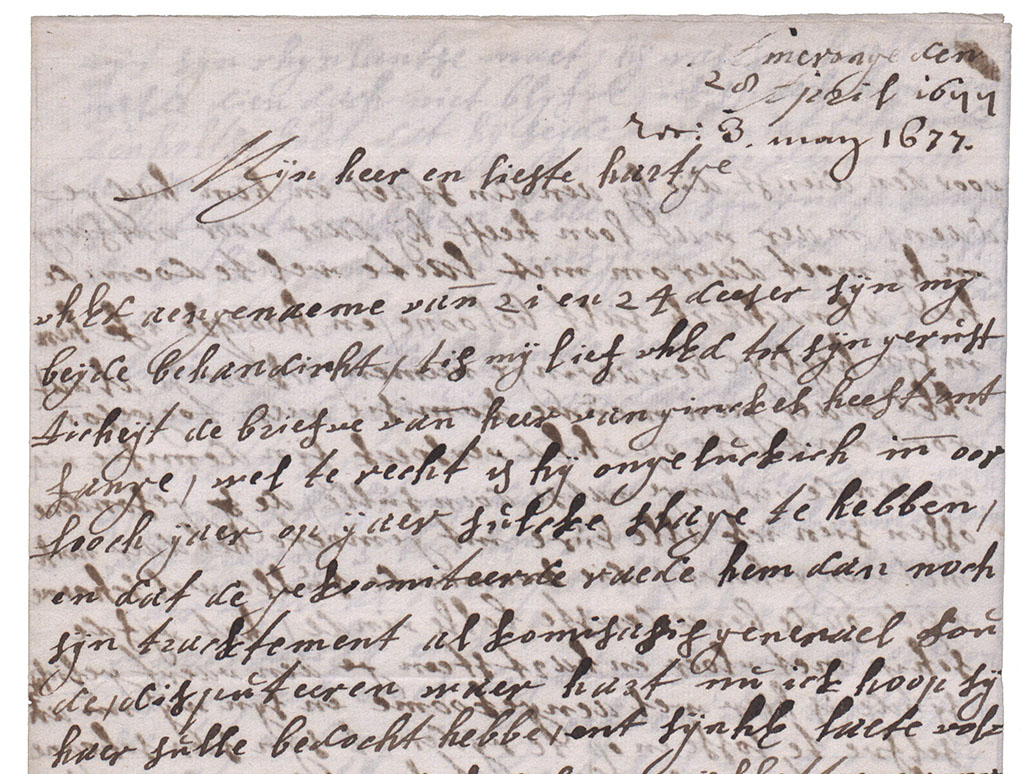 Ameronge den
28 April 1677
Rec: 3. may 1677.
Mijn heer en lieste hartge
uhEd aengenaeme van 21 en 24 deeser sijn mij
beijde behandicht, tis mij lief uhEd tot sijn gerust
ticheyt de briefve van heer van ginckel heeft ont
fange, wel te recht is hij ongeluckich in oor
looch jaer op jaer sulcke slage te hebben,
en dat de gekomiteerde raede hem dan noch
sijn tracktement al komisasis generael sou
de, disputeeren waer hart nu ick hoop sij
haer sulle bedocht hebbe, ent sijnhE laete vol=